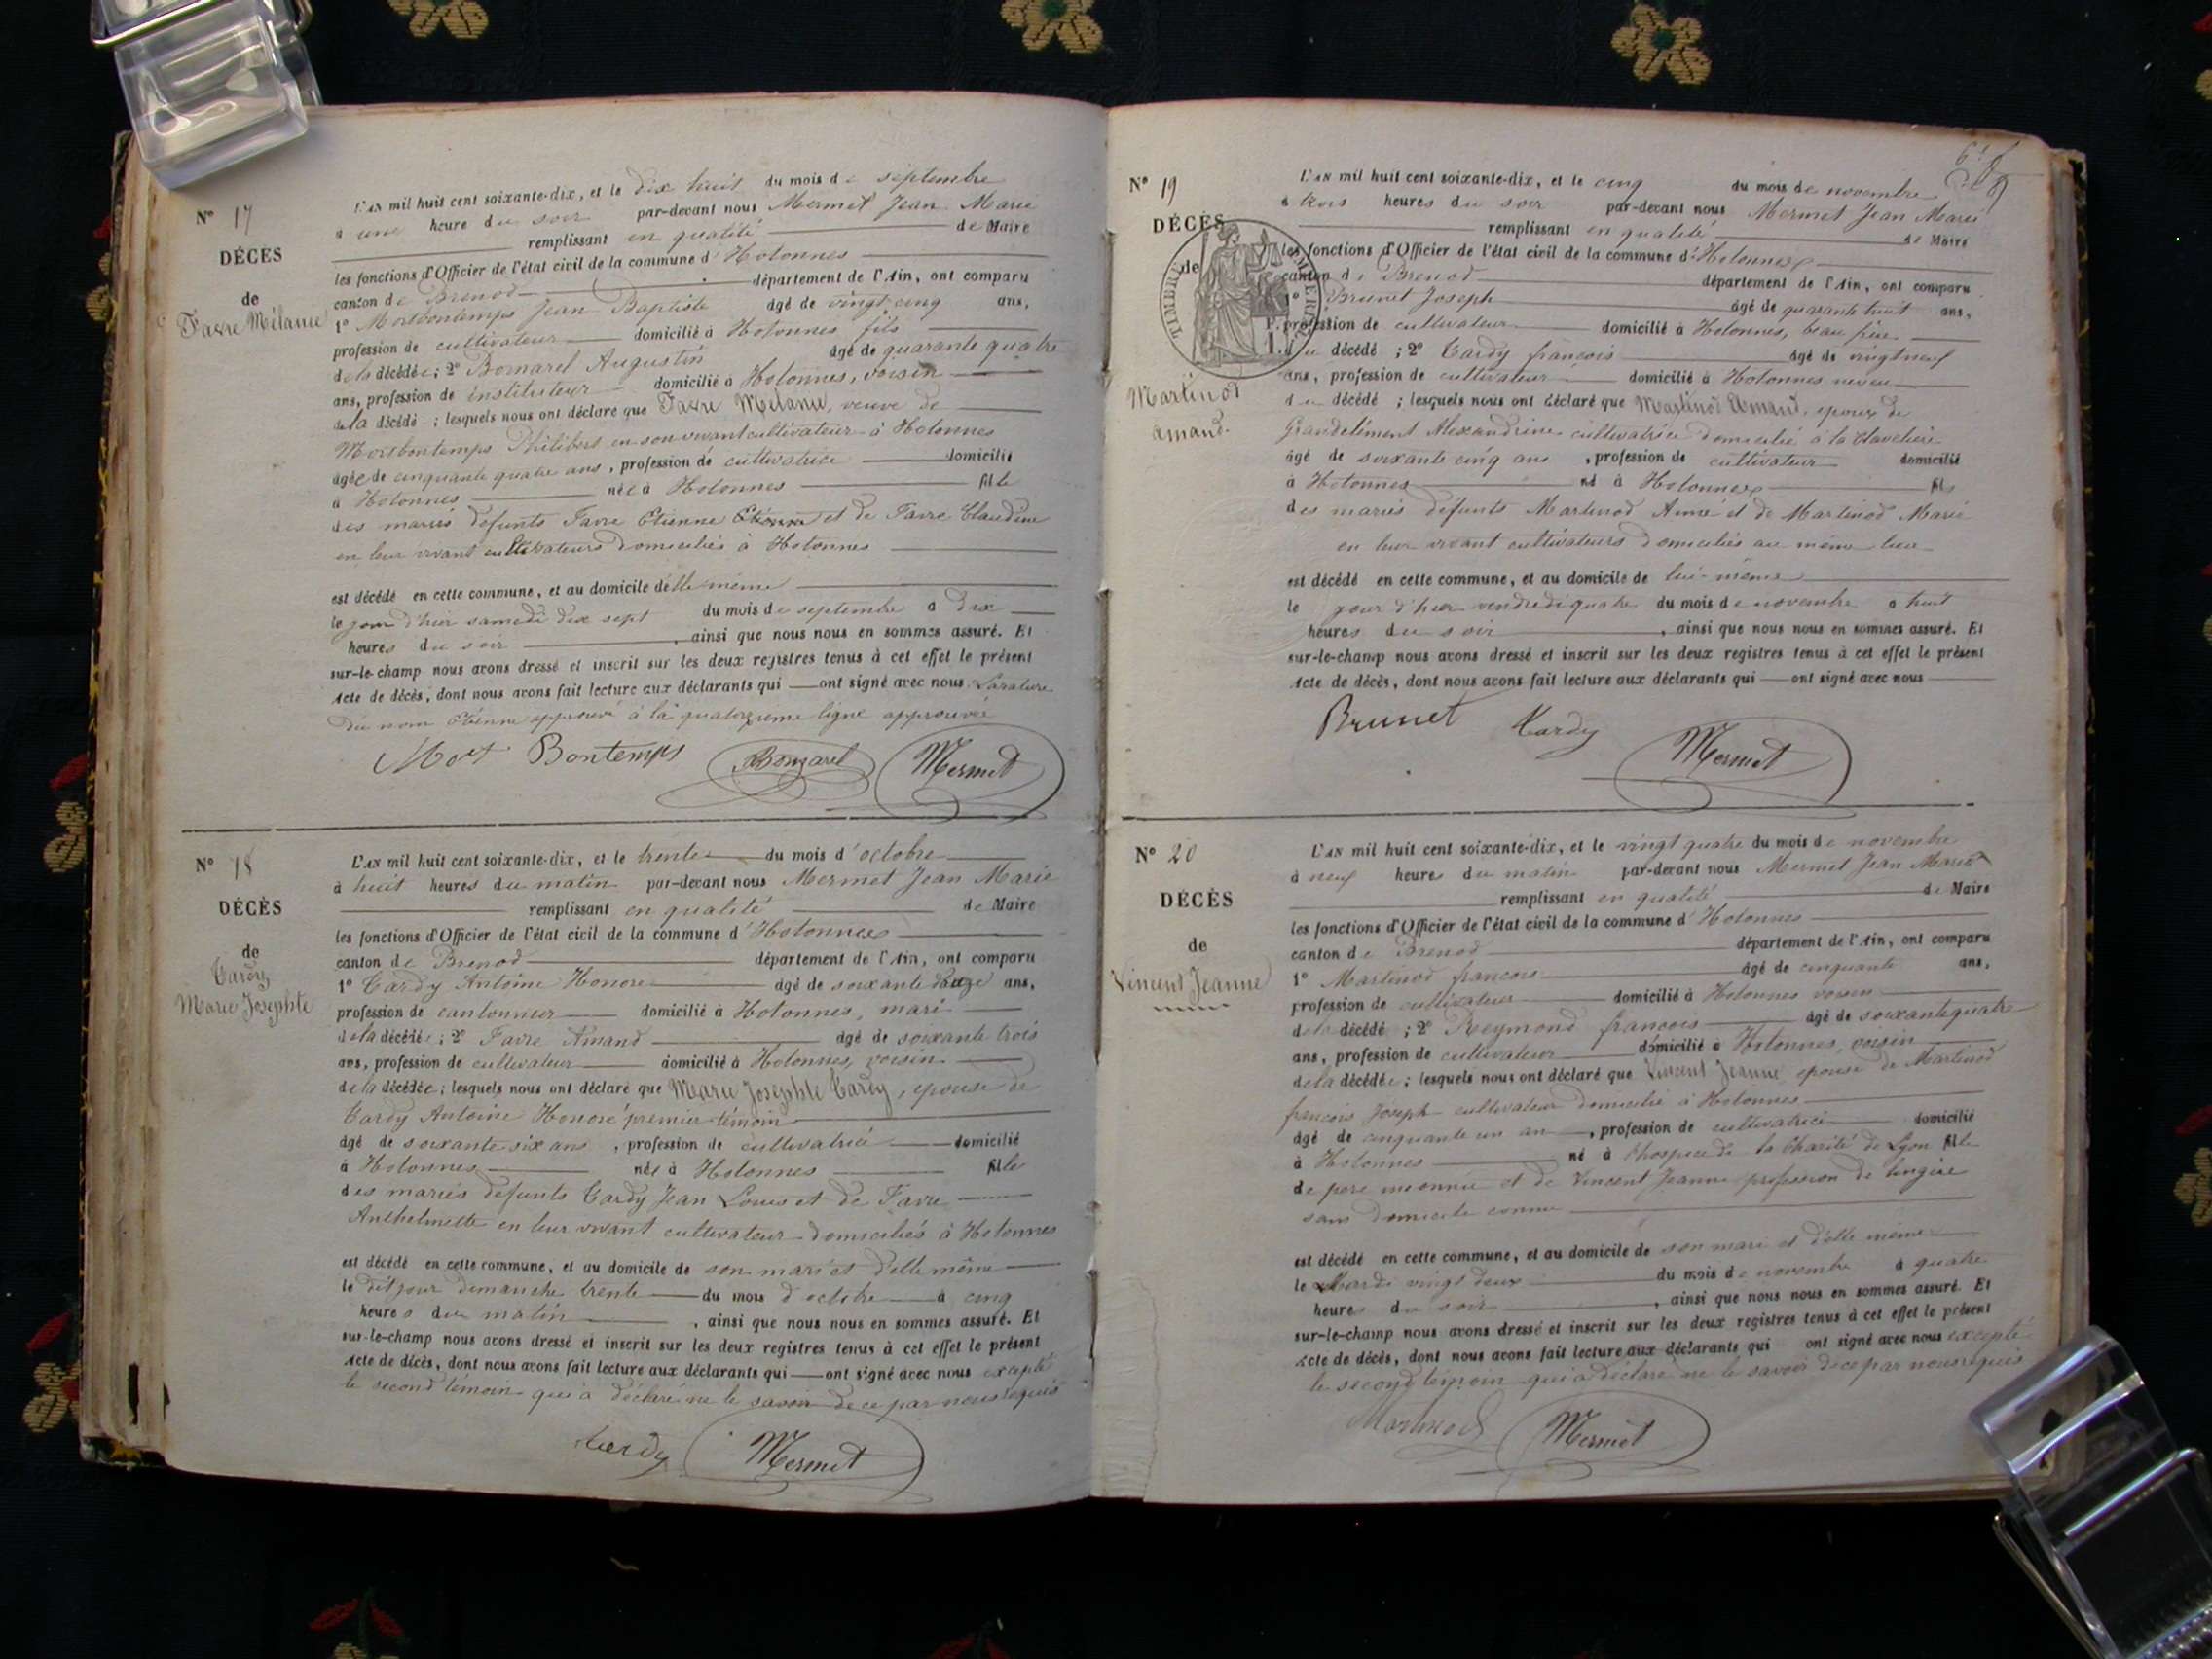 N° 17
DÉCES
de
Favre Mélanie
L'AN mil huit cent soixante-dix, et le dix huit du mois de septembre
à une heure du soir par-devant nous Mermet Jean Marie
remplissant en qualité de Maire
les fonctions d'Officier de l'état civil de la commune d'Hotonnes
canton de Brenod département de l'Ain, ont comparu
1° Mortbontemps Jean Baptiste âgé de vingt-cinq ans,
profession de cultivateur domicilié à Hotonnes fils
de la décédée; 2° Bornarel Augustin âgé de quarante quatre
ans, profession de instituteur domicilié à Hotonnes, voisin
de la décédé ; lesquels nous ont déclaré que Favre Mélanie, veuve de
Mortbontemps Philibert en son vivant cultivateur à Hotonnes
âgée de cinquante quatre ans, profession de cultivatrice domicilié
à Hotonnes née à Hotonnes fille
des mariés défunts Favre Etienne Etienne et de Favre Claudine
en leur vivant cultivateurs domiciliés à Hotonnes
est décédé en cette commune, et au domicile d'elle même
le jour d'hier samedi dix sept du mois de septembre à dix
heures du soir, ainsi que nous nous en sommes assuré. Et
sur-le-champ nous avons dressé et inscrit sur les deux registres tenus à cet effet le présent
Acte de décès, dont nous avons fait lecture aux déclarants qui ont signé avec nous La rature
du nom Etienne approuvé à la quatorzieme ligne approuvée
Mort Bontemps Bornarel Mermet
N° 18
DÉCÈS
de
Cardy
Marie Josephte
L'AN mil huit cent soixante-dix, et le trente du mois d'octobre
à huit heures du matin par-devant nous Mermet Jean Marie
remplissant en qualité de Maire
les fonctions d'Officier de l'état civil de la commune d'Hotonnes
canton de Brenod département de l'Ain, ont comparu
1° Cardy Antoine Honoré âgé de soixante douze ans,
profession de cantonnier domicilié à Hotonnes, mari
de la décédée; 2° Favre Amand âgé de soixante trois
ans, profession de cultivateur domicilié à Hotonnes, voisin
de la décédée; lesquels nous ont déclaré que Marie Josephte Cardy, epouse de
Cardy Antoine Honoré premier témoin
âgé de soixante six ans, profession de cultivatrice domicilié
à Hotonnes née à Hotonnes fille
des mariés défunts Cardy Jean Louis et de Favre
Anthelmette en leur vivant cultivateur domiciliés à Hotonnes
est décédé en cette commune, et au domicile de son mari et d'elle même
le dit jour dimanche trente du mois d'octobre à cinq
heures du matin, ainsi que nous nous en sommes assuré. Et
sur-le-champ nous avons dressé et inscrit sur les deux registres tenus à cet effet le présent
Acte de décès, dont nous avons fait lecture aux déclarants qui ont signé avec nous excepté
le second témoin qui a déclaré ne le savoir de ce par nous requis
Cardy Mermet
N° 19
DÉCÈS
de
TIMBRE IMPERIAL
Martinod
Amand.
L'AN mil huit cent soixante-dix, et le cinq du mois de novembre
à trois heures du soir par-devant nous Mermet Jean Marie
remplissant en qualité de Maire
les fonctions d'Officier de l'état civil de la commune d'Hotonnes
canton de Brenod département de l'Ain, ont comparu
1° Brunet Joseph âgé de quarante huit ans,
profession de cultivateur domicilié à Hotonnes, beau frère
du décédé ; 2° Cardy françois âgé de vingt neuf
ans, profession de cultivateur domicilié à Hotonnes neveu
du décédé ; lesquels nous ont déclaré que Martinod Amand, epoux de
Grandclément Alexandrine cultivatrice domicilié à la Clavelière
âgé de soixante cinq ans, profession de cultivateur domicilié
à Hotonnes né à Hotonnes fils
des mariés défunts Martinod Aimé et de Martinod Marie
en leur vivant cultivateurs domiciliés au même lieu
est décédé en cette commune, et au domicile de lui-même
le jour d'hier vendredi quatre du mois de novembre à huit
heures du soir, ainsi que nous nous en sommes assuré. Et
sur-le-champ nous avons dressé et inscrit sur les deux registres tenus à cet effet le présent
Acte de décès, dont nous avons fait lecture aux déclarants qui ont signé avec nous
Brunet Cardy Mermet
N° 20
DÉCÈS
de
Vincent Jeanne
L'AN mil huit cent soixante-dix, et le vingt quatre du mois de novembre
à neuf heures du matin par-devant nous Mermet Jean Marie
remplissant en qualité de Maire
les fonctions d'Officier de l'état civil de la commune d'Hotonnes
canton de Brenod département de l'Ain, ont comparu
1° Martinod francois âgé de cinquante ans,
profession de cultivateur domicilié à Hotonnes voisin
de la décédé ; 2° Reymond francois âgé de soixante quatre
ans, profession de cultivateur domicilié à Hotonnes, voisin
de la décédée; lesquels nous ont déclaré que Vincent Jeanne epouse de Martinod
francois Joseph cultivateur domicilié à Hotonnes
âgé de cinquante un an, profession de cultivatrice domicilié
à Hotonnes né à l'hospice de la Charité de Lyon fille
de pere inconnu et de Vincent Jeanne profession de lingère
sans domicile connu
est décédé en cette commune, et au domicile de son mari et d'elle même
le Mardi vingt deux du mois de novembre à quatre
heures du soir, ainsi que nous nous en sommes assuré. Et
sur-le-champ nous avons dressé et inscrit sur les deux registres tenus à cet effet le présent
Acte de décès, dont nous avons fait lecture aux déclarants qui ont signé avec nous excepté
le second témoin qui a déclaré ne le savoir de ce par nous requis
Martinod Mermet